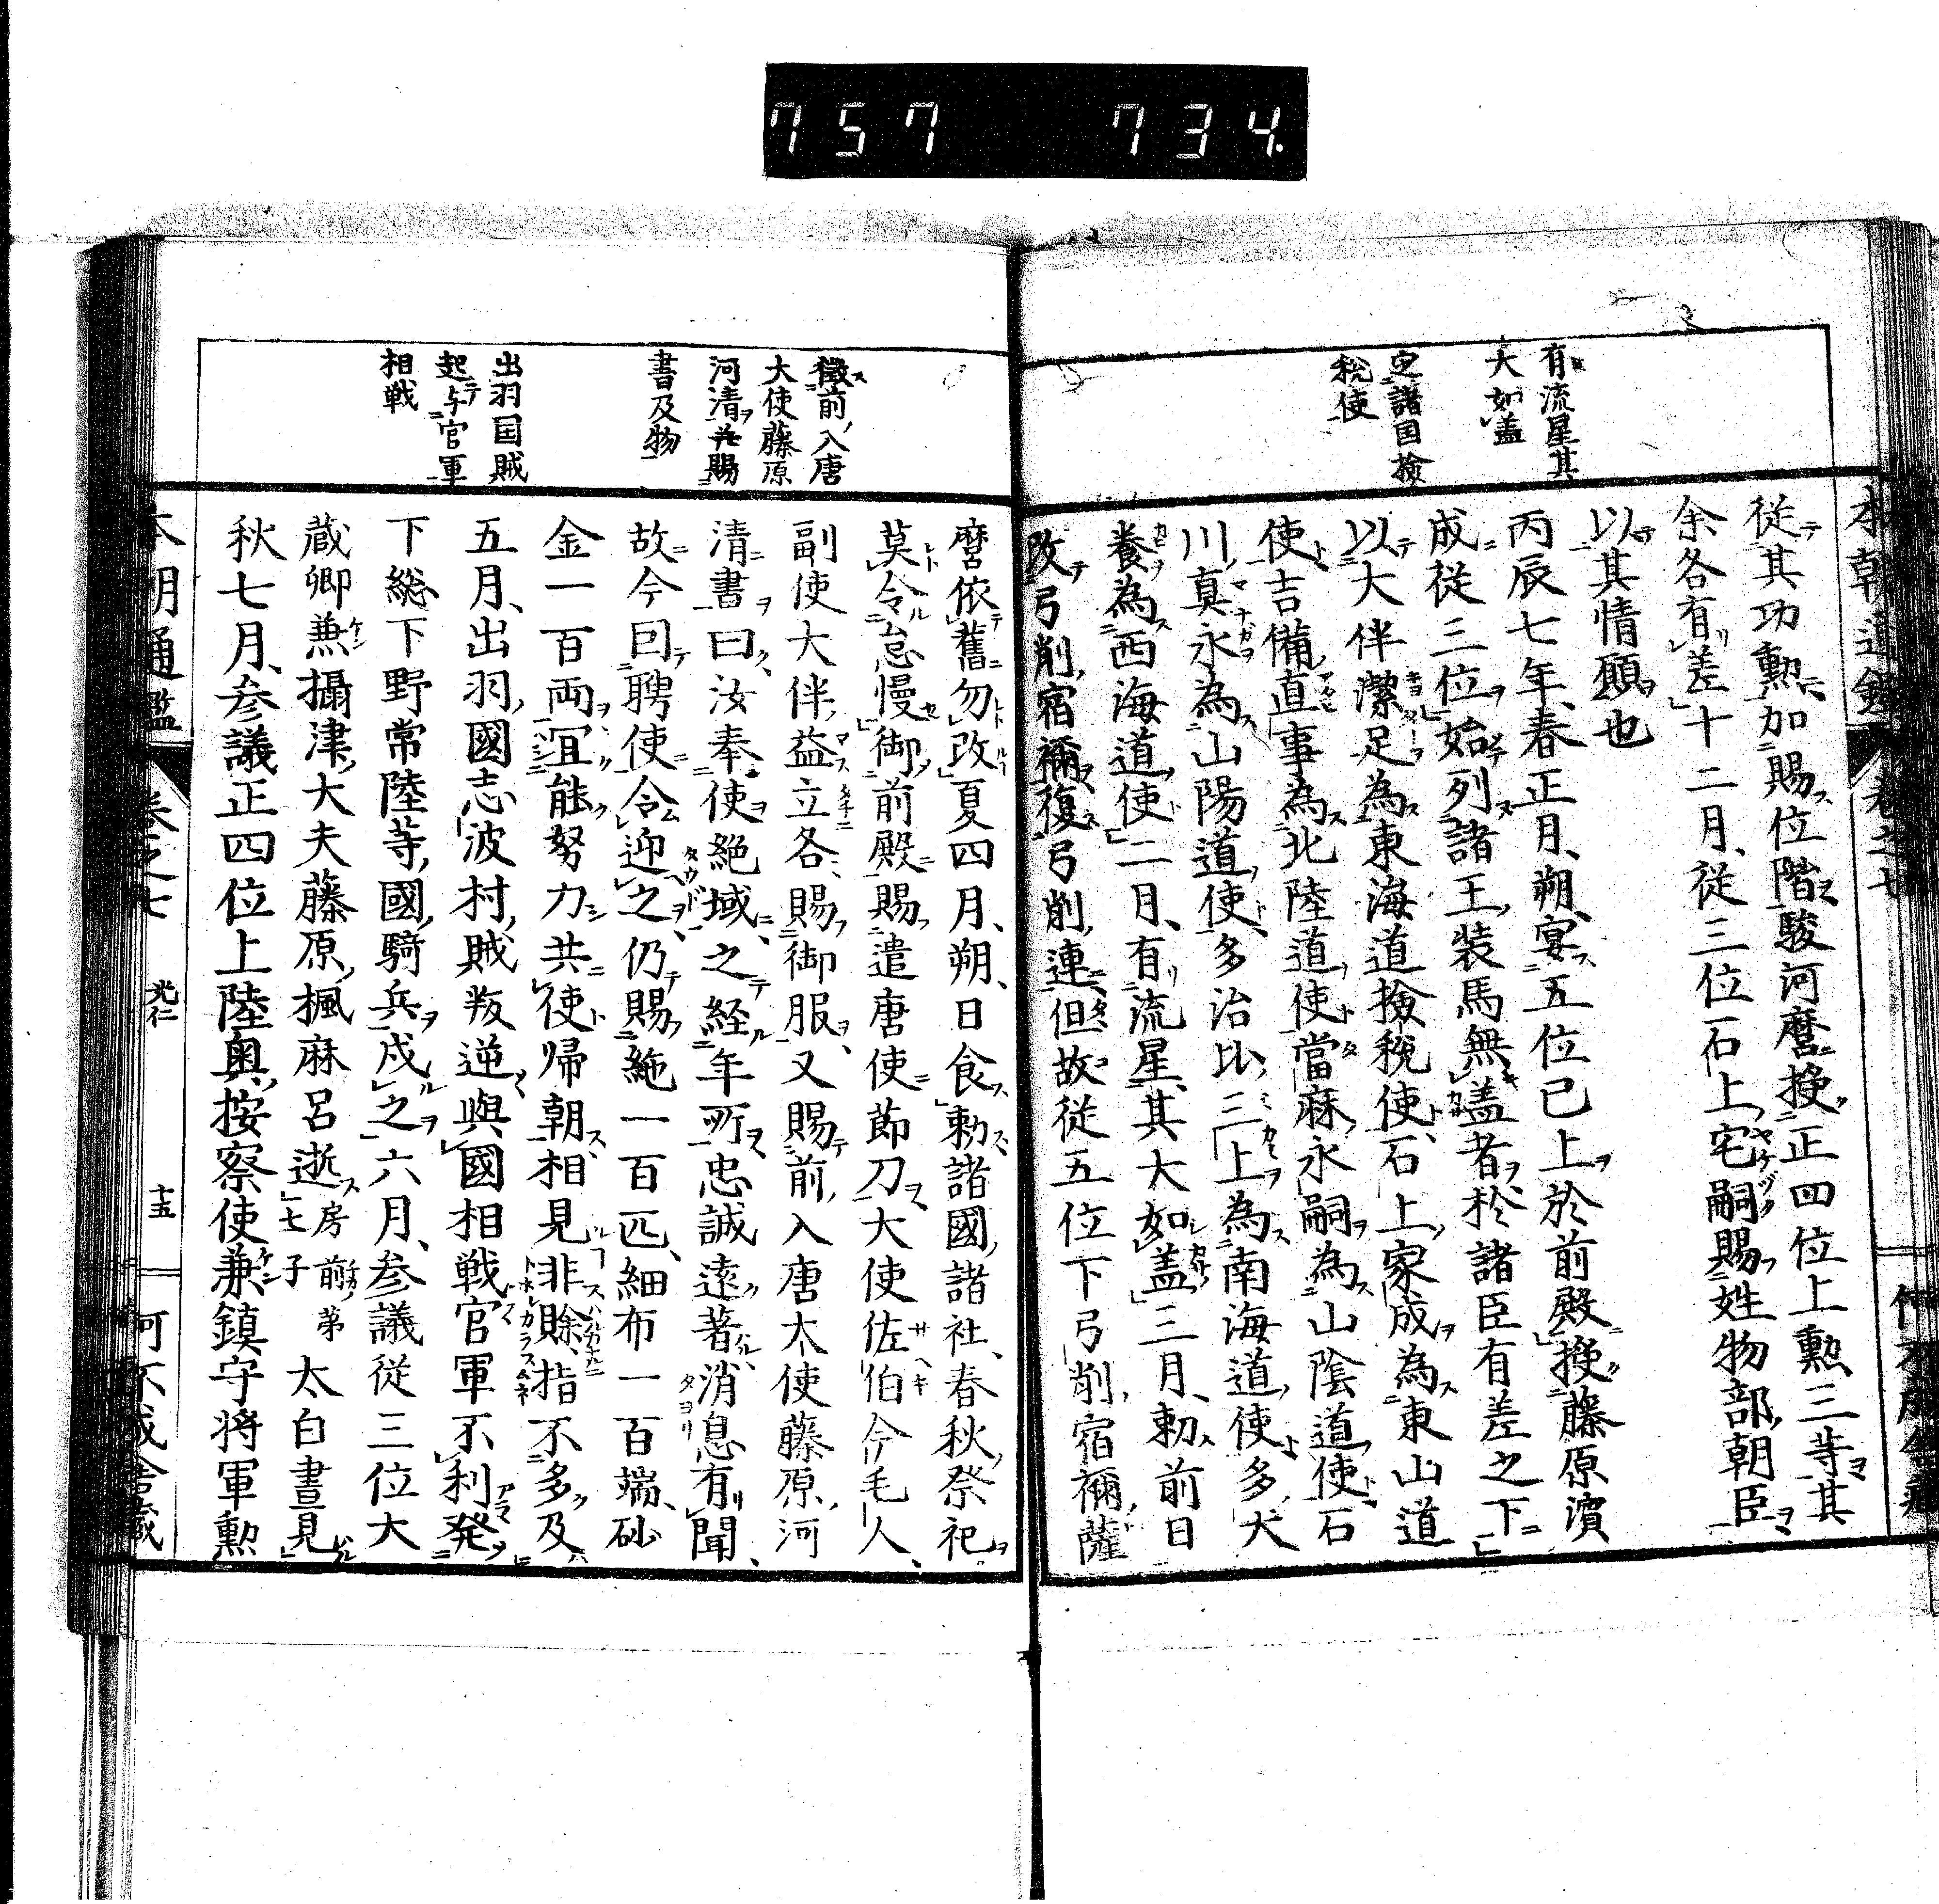 757 734.
本朝通鑑 卷之七
有流星其
大如盖
定諸国撿
税使
従其功勲加賜位階駿河麿授正四位上勲三等其
余各有差十二月従三位石上宅嗣賜姓物部朝臣
以其情願也
丙辰七年春正月朔宴五位已上於前殿授藤原濵
成従三位始列諸王装馬無盖者於諸臣有差之下
以大伴潔足為東海道撿税使石上家成為東山道
使吉備真事為北陸道使當麻永嗣為山陰道使石
川真永為山陽道使多治比三上為南海道使多犬
養為西海道使二月有流星其大如盖三月勅前日
改弓削宿禰復弓削連但故従五位下弓削宿禰薩
徴前入唐
大使藤原
河清并賜
書及物
出羽国賊
起与官軍
相戦
麿依舊勿改夏四月朔日食勅諸國諸社春秋祭祀
莫令怠慢御前殿賜遣唐使節刀大使佐伯今毛人
副使大伴益立各賜御服又賜前入唐大使藤原河
清書曰汝奉使絶域之経年所忠誠遠著消息有聞
故今因聘使令迎之仍賜絁一百匹細布一百端砂
金一百両宜能努力共使帰朝相見非賖指不多及
五月出羽國志波村賊叛逆與國相戦官軍不利発
下総下野常陸等國騎兵戍之六月参議従三位大
蔵卿兼攝津大夫藤原楓麻呂逝房前第七子太白晝見
秋七月参議正四位上陸奥按察使兼鎮守将軍勲
本朝通鑑 卷之七 光仁 十五 何不成舎蔵